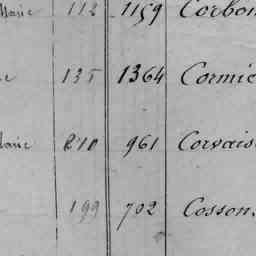 Marie 112 1159 Corbon
e 135 1364 Cormie
Marie 210 961 Corvais
199 702 Cosson